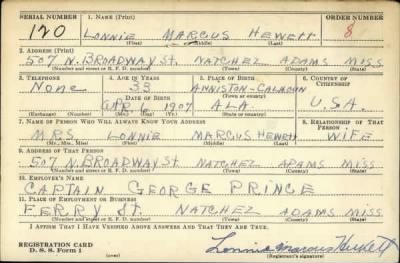 SERIAL NUMBER 1. NAME (Print) ORDER NUMBER
120 LONNIE MARCUS HEWETT 8
(First) (Middle) (Last)
2. ADDRESS (Print)
507 N. BROADWAY St. NATCHEZ ADAMS MISS
(Number and street or R. F. D. number) (Town) (County) (State)
3. TELEPHONE 4. AGE IN YEARS 5. PLACE OF BIRTH 6. COUNTRY OF CITIZENSHIP
NONE 33 ANNISTON-CALHOUN
DATE OF BIRTH (Town or county)
APR 6 1907 ALA. U.S.A.
(Exchange) (Number) (Mo.) (Day) (Yr.) (State or country)
7. NAME OF PERSON WHO WILL ALWAYS KNOW YOUR ADDRESS 8. RELATIONSHIP OF THAT PERSON
MRS LONNIE MARCUS HEWETT WIFE
(Mr., Mrs., Miss) (First) (Middle) (Last)
9. ADDRESS OF THAT PERSON
507 N. BROADWAY St. NATCHEZ ADAMS MISS.
(Number and street or R. F. D. number) (Town) (County) (State)
10. EMPLOYER'S NAME
CAPTAIN GEORGE PRINCE
11. PLACE OF EMPLOYMENT OR BUSINESS
FERRY St. NATCHEZ ADAMS MISS
(Number and street or R. F. D. number) (Town) (County) (State)
I AFFIRM THAT I HAVE VERIFIED ABOVE ANSWERS AND THAT THEY ARE TRUE.
REGISTRATION CARD
D. S. S. Form 1 (over) Lonnie Marcus Hewett
(Registrant's signature)